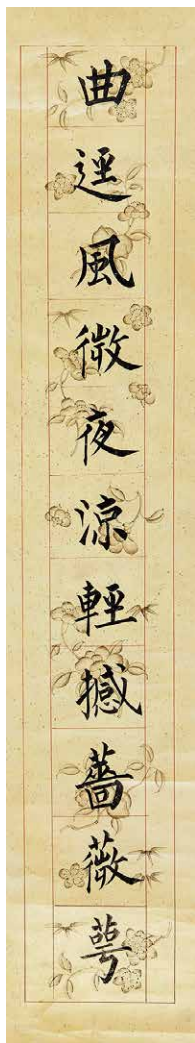 曲逕風微夜涼輕撼薔薇萼